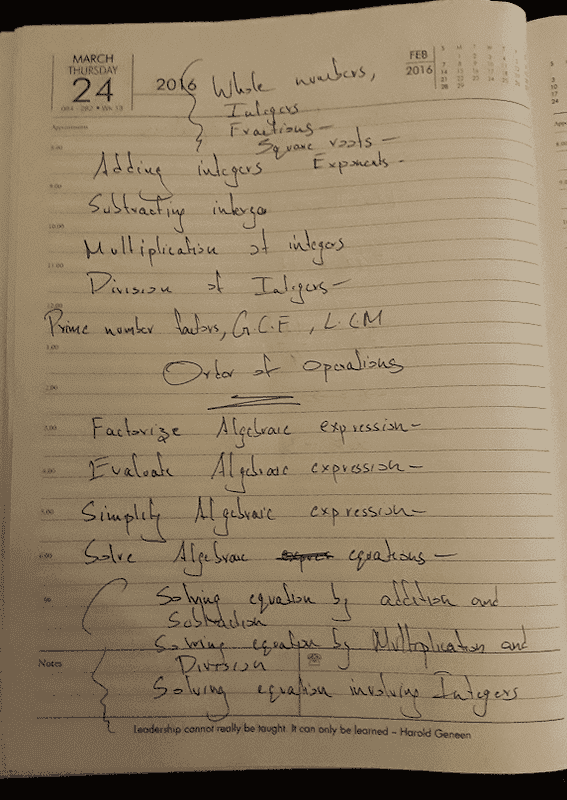 MARCH
THURSDAY
24
2016
FEB
2016
Whole numbers,
Integers
Fractions -
Square roots -
Appointments
8.00
Adding integers Exponents -
9.00
Subtracting interge
10.00
Multiplication of integers
11.00
Division of Integers -
12.00
Prime number factors, G.C.F, L.C.M
1.00
Order of Operations
2.00
3.00
Factorize Algebraic expression -
4.00
Evaluate Algebraic expression -
5.00
Simplify Algebraic expression -
6.00
Solve Algebraic expres equations -
Solving equation by addition and
Subtraction
Solving equation by Multiplication and
Notes
Division
Solving equation involving Integers
Leadership cannot really be taught. It can only be learned – Harold Geneen